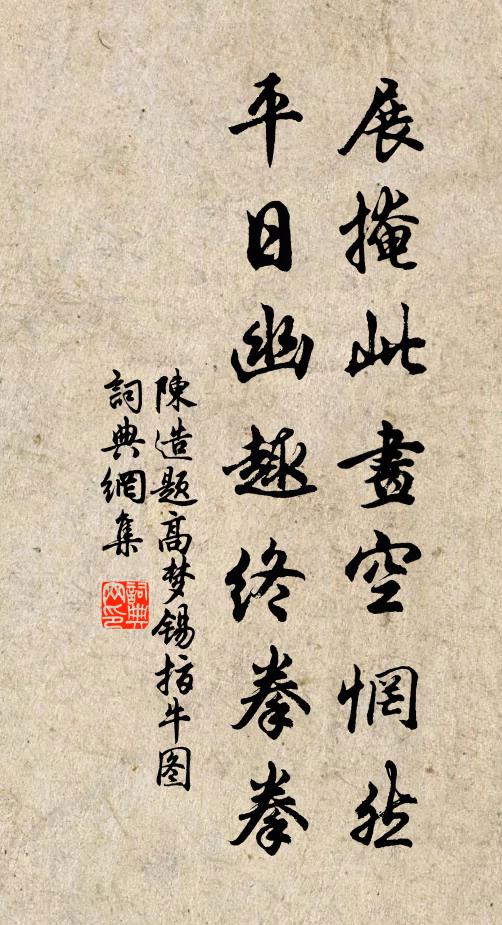 展掩此畫空惘然
平日幽趣終拳拳
陳造題高梦锡指牛图
詞典網集
詞典網印